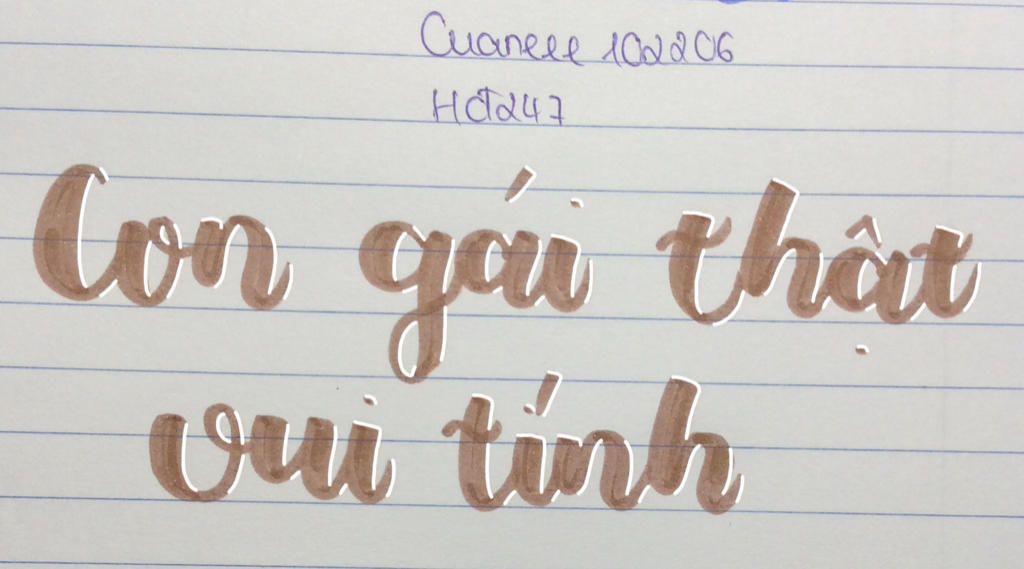 Cuaneee 102206
HĐT247
Con gái thật
vui tính